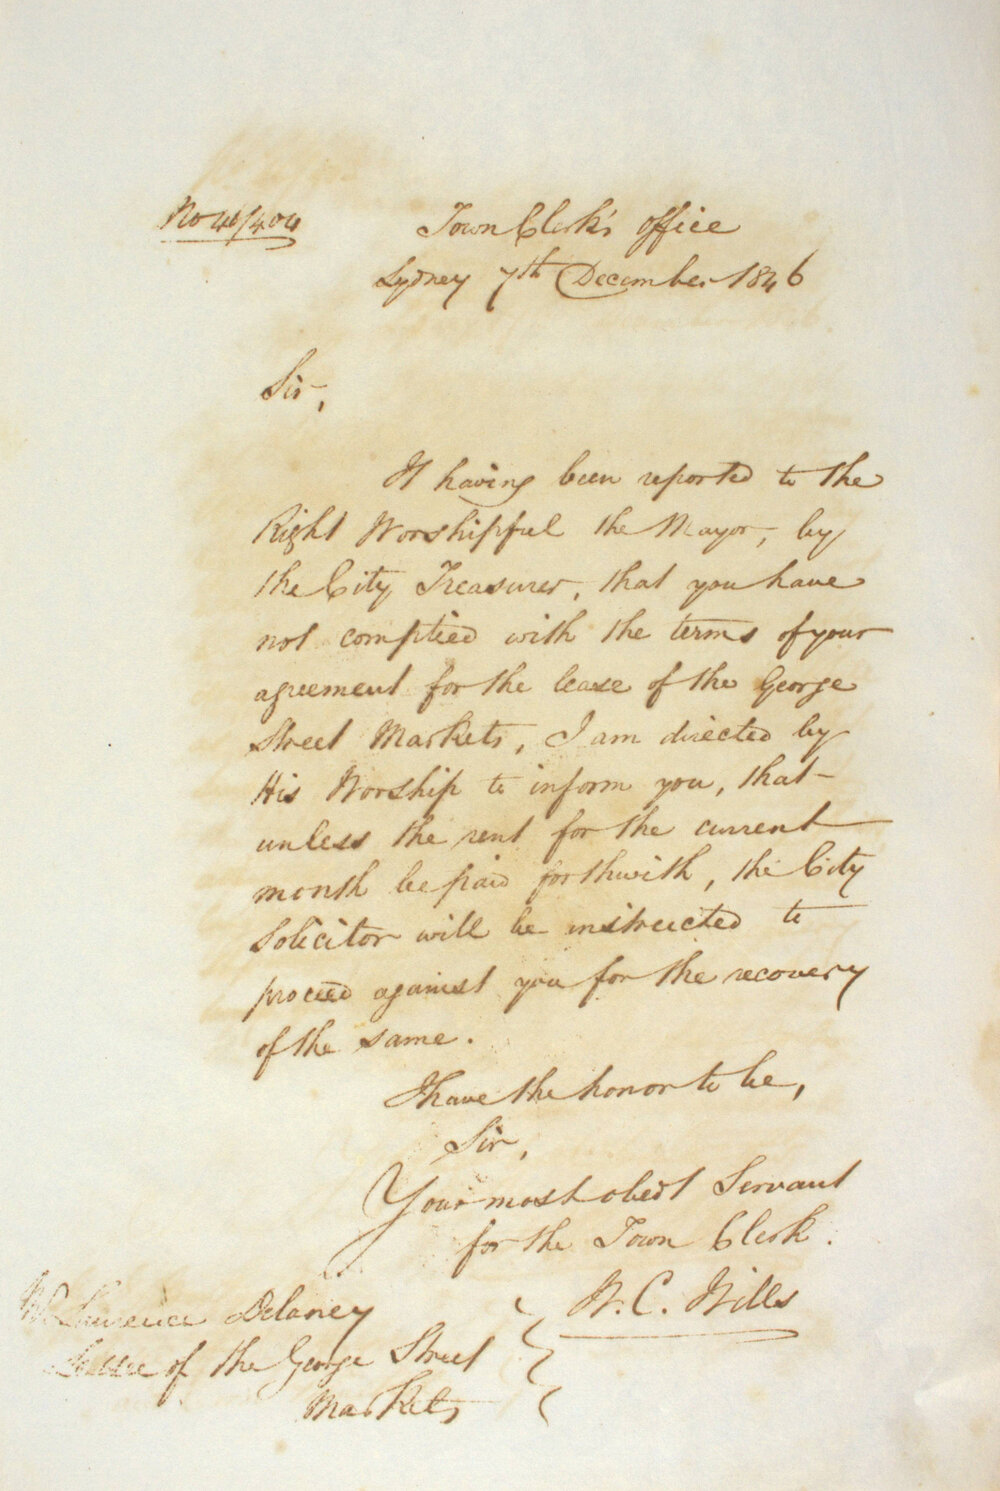 No 46/404
Town Clerk's Office
Sydney 7th December 1846
Sir,
It having been reported to the
Right Worshipful the Mayor, by
the City Treasurer, that you have
not complied with the terms of your
agreement for the lease of the George
Street Markets, I am directed by
His Worship to inform you, that
unless the rent for the current
month be paid forthwith, the City
Solicitor will be instructed to
proceed against you for the recovery
of the same.
I have the honor to be,
Sir,
Your most obedt Servant
for the Town Clerk.
W. C. Wills
Mr Lawrence Delaney
Lessee of the George Street
Markets